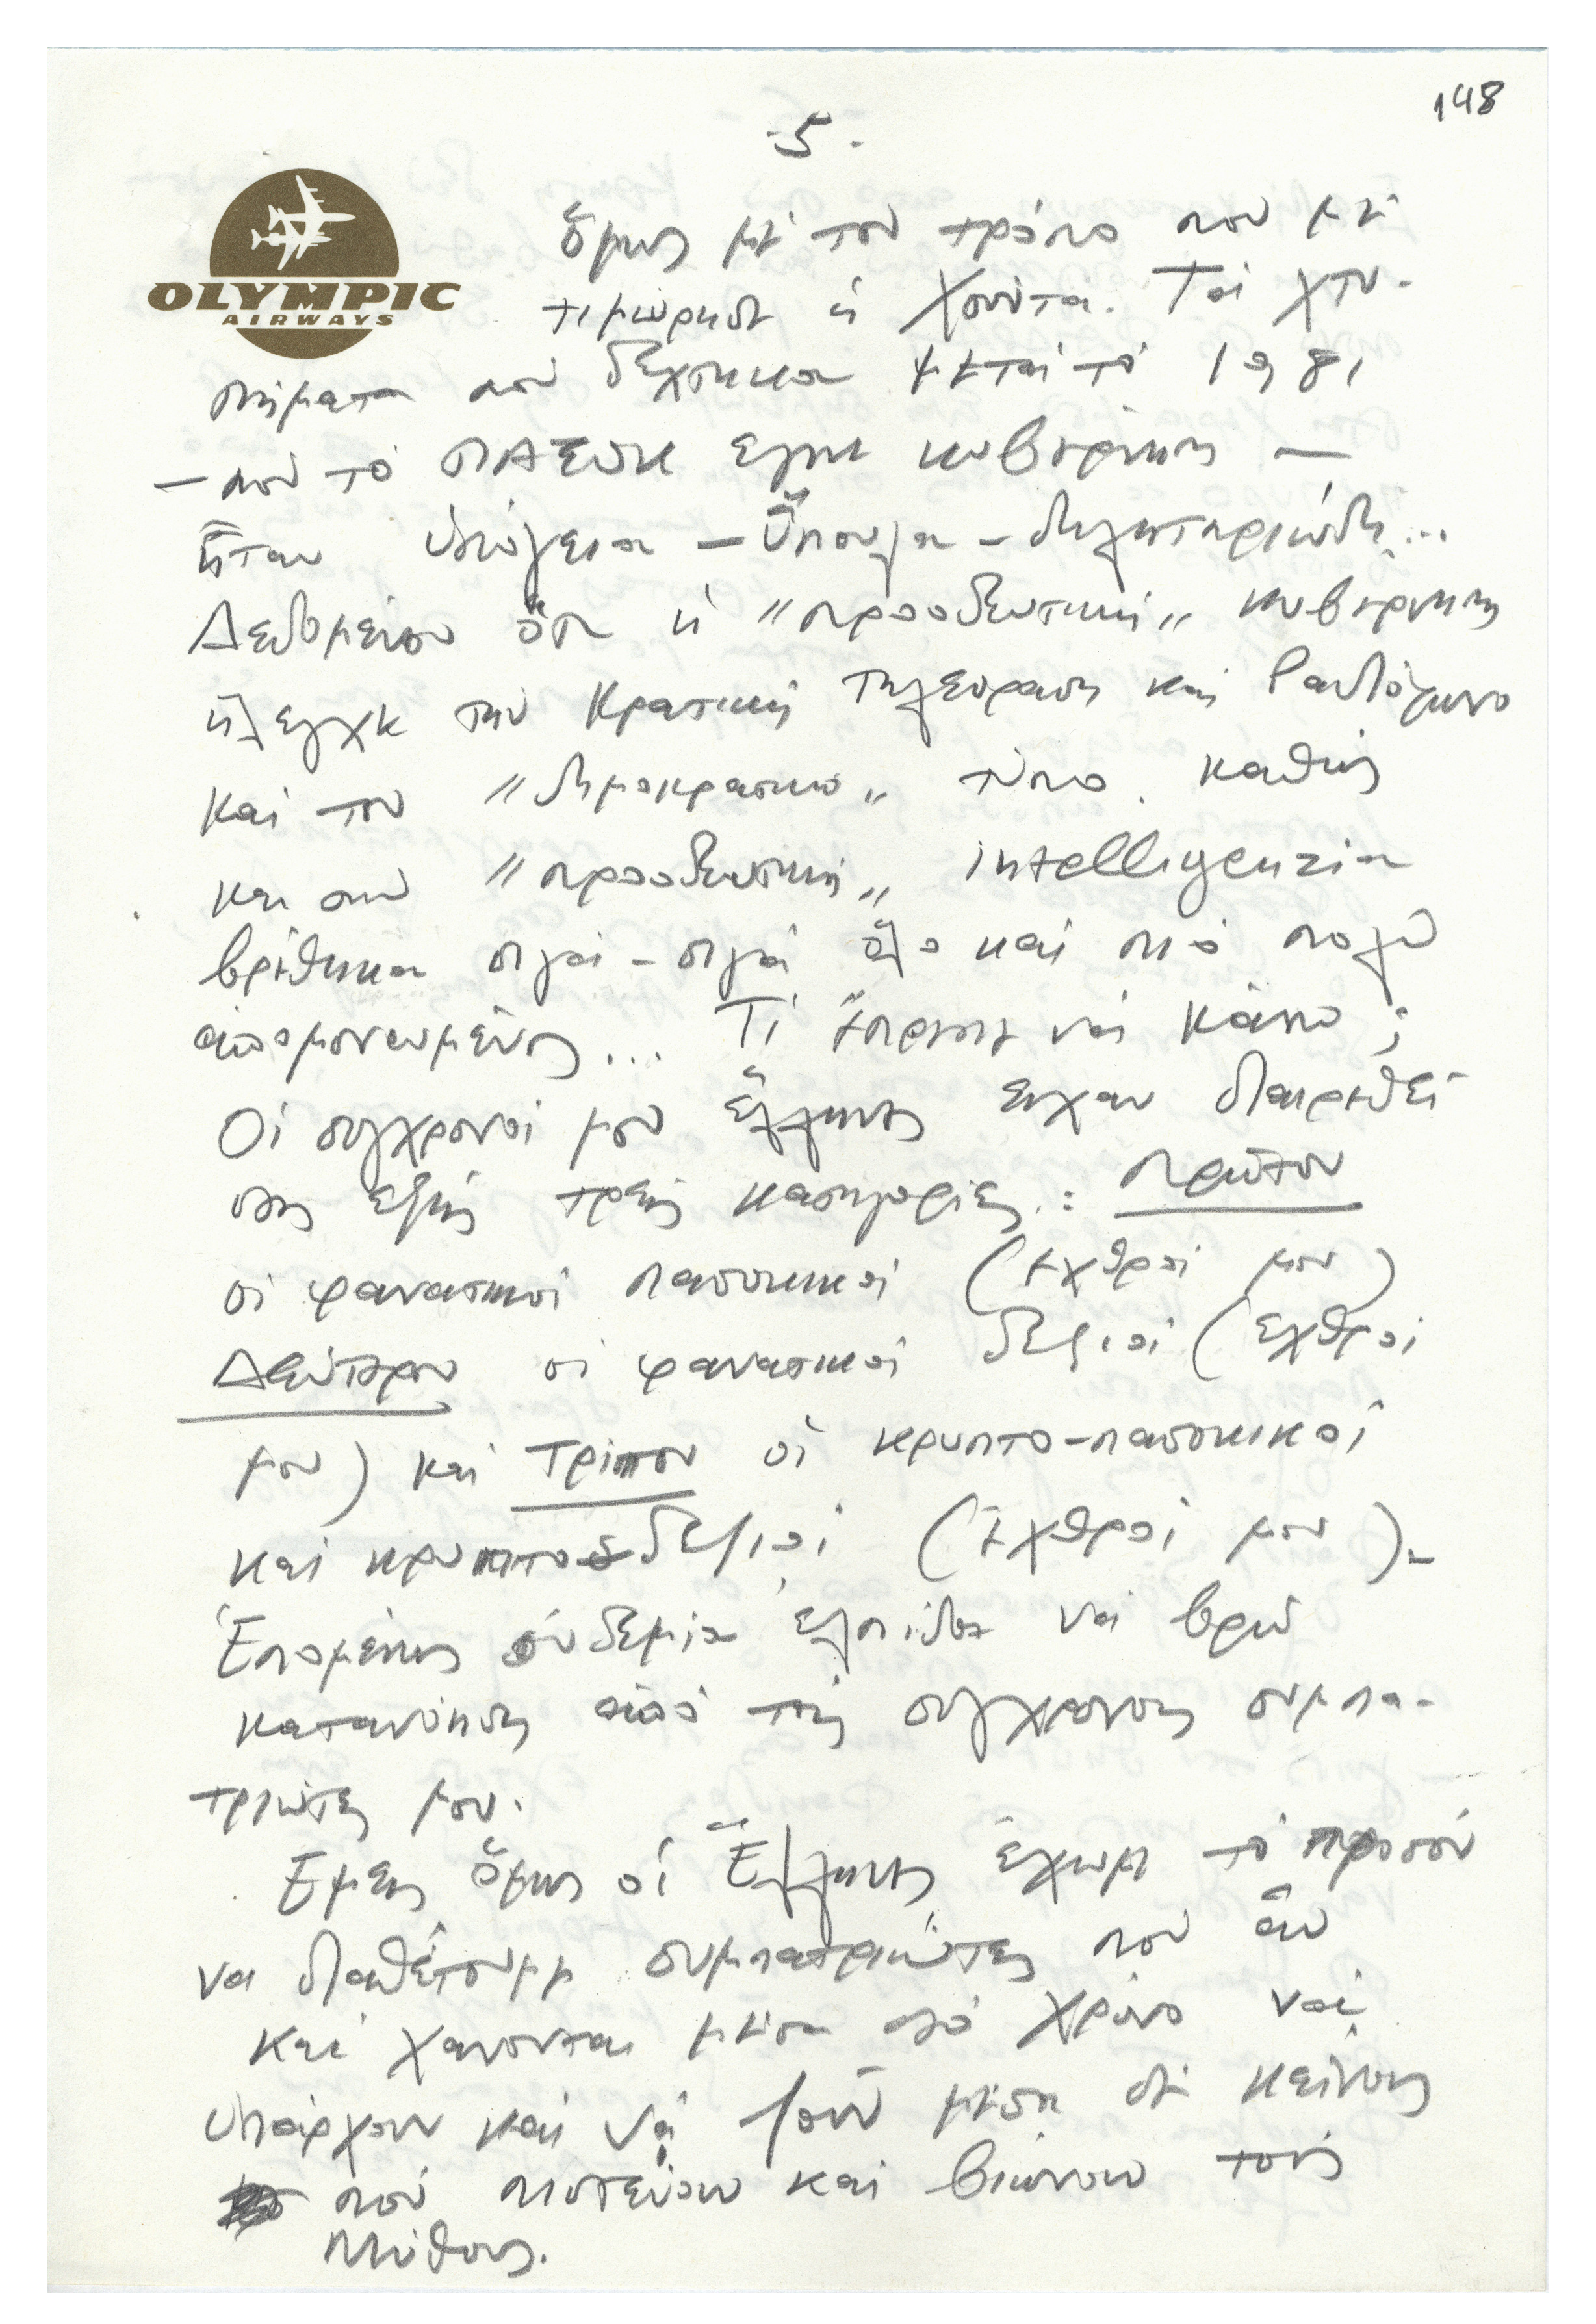 148
-5-
OLYMPIC
AIRWAYS
ὅμως μὲ τον τρόπο που μὲ
τιμώρησε ἡ Χούντα. Τὰ χτυ-
πήματα που δέχτηκα μετὰ τὸ 1981
- που τὸ ΠΑΣΟΚ έγινε κυβέρνηση -
ἦταν ὑπόγεια - Ὕπουλα - δηλητηριώδη...
Δεδομένου ὅτι ἡ "προοδευτική" κυβέρνηση
ἤλεγχε τὴν Κρατική τηλεόραση καὶ Ραδιόφωνο
καὶ τον "δημοκρατικό" τύπο. καθώς
και την "προοδευτική" intelligenzia
βρέθηκα σιγά-σιγά ὅλο καὶ πιὸ πολύ
ἀπομονωμένος... Τί ἔπρεπε νὰ κάνω;
Οἱ σύγχρονοί μου ἕλληνες ειχαν διαιρεθεῖ
στις εξής τρεις κατηγορίες.: πρῶτον
οἱ φανατικοί πασοκικοί (ἐχθροί μου)
Δεύτερον οἱ φανατικοί δεξιοί (ἐχθροί
μου) καὶ Τρίτον οἱ κρυπτο-πασοκικοί
καὶ κρυπτοδεξιοί (ἐχθροί μου).-
Ἑπομένως οὐδεμία ἐλπίδα νὰ βρῶ
κατανόηση ἀπὸ τοὺς σύγχρονους συμπα-
τριώτες μου.
Εμεις ὅμως οἱ Ἕλληνες ἔχουμε τὸ προσόν
να διαθέτουμε συμπατριῶτες που ἂν
καὶ χανονται μέσα στὸ χρόνο νὰ
ὑπάρχουν καὶ νὰ ζοῦν μέσα σὲ κείνους
ποὺ πιστεύουν καὶ βιώνουν τοὺς
Μύθους.